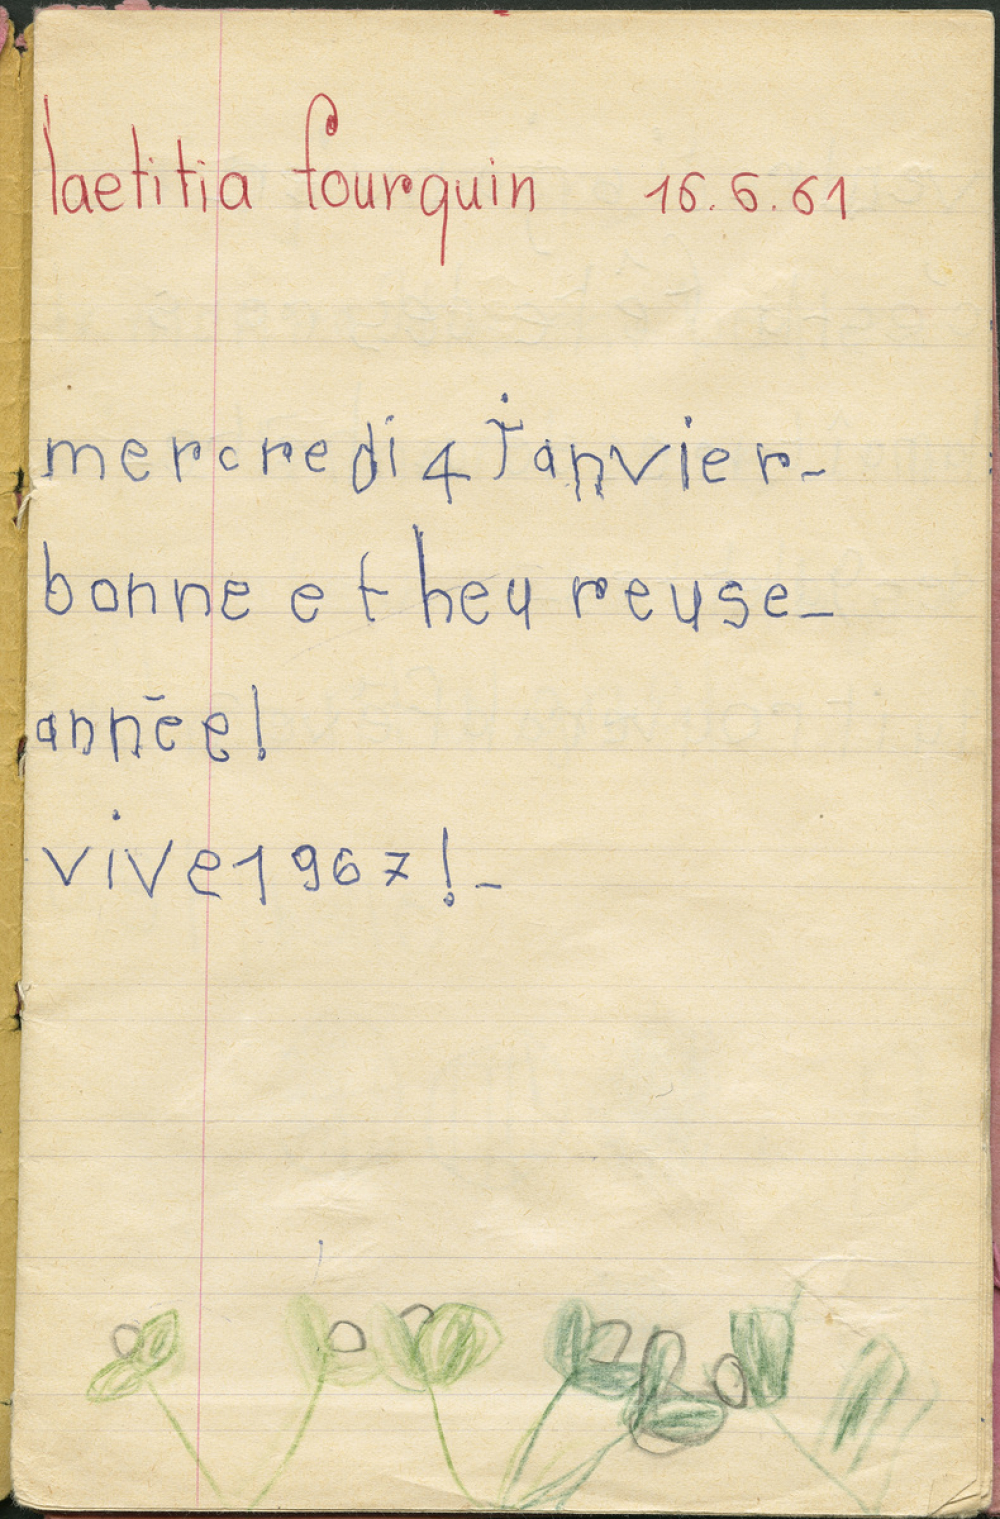 laetitia fourquin 16.6.61
mercredi 4 janvier-
bonne et heureuse-
année!
vive 1967!-